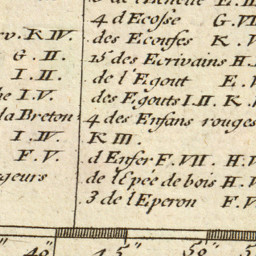 4 d Ecosse G. VI
v. K IV. des Ecouffes K. V
G. II. 15 des Ecrivains H. I
I. II. de l'Egout E. V
he I. V. des Egouts I. II. K.
la Breton 4 des Enfans rouges
I. IV. K III.
F. V. d Enfer F. VII. H. V
geurs de l'Epée de bois H. V
3 de l'Eperon F. V
40" 45 50"